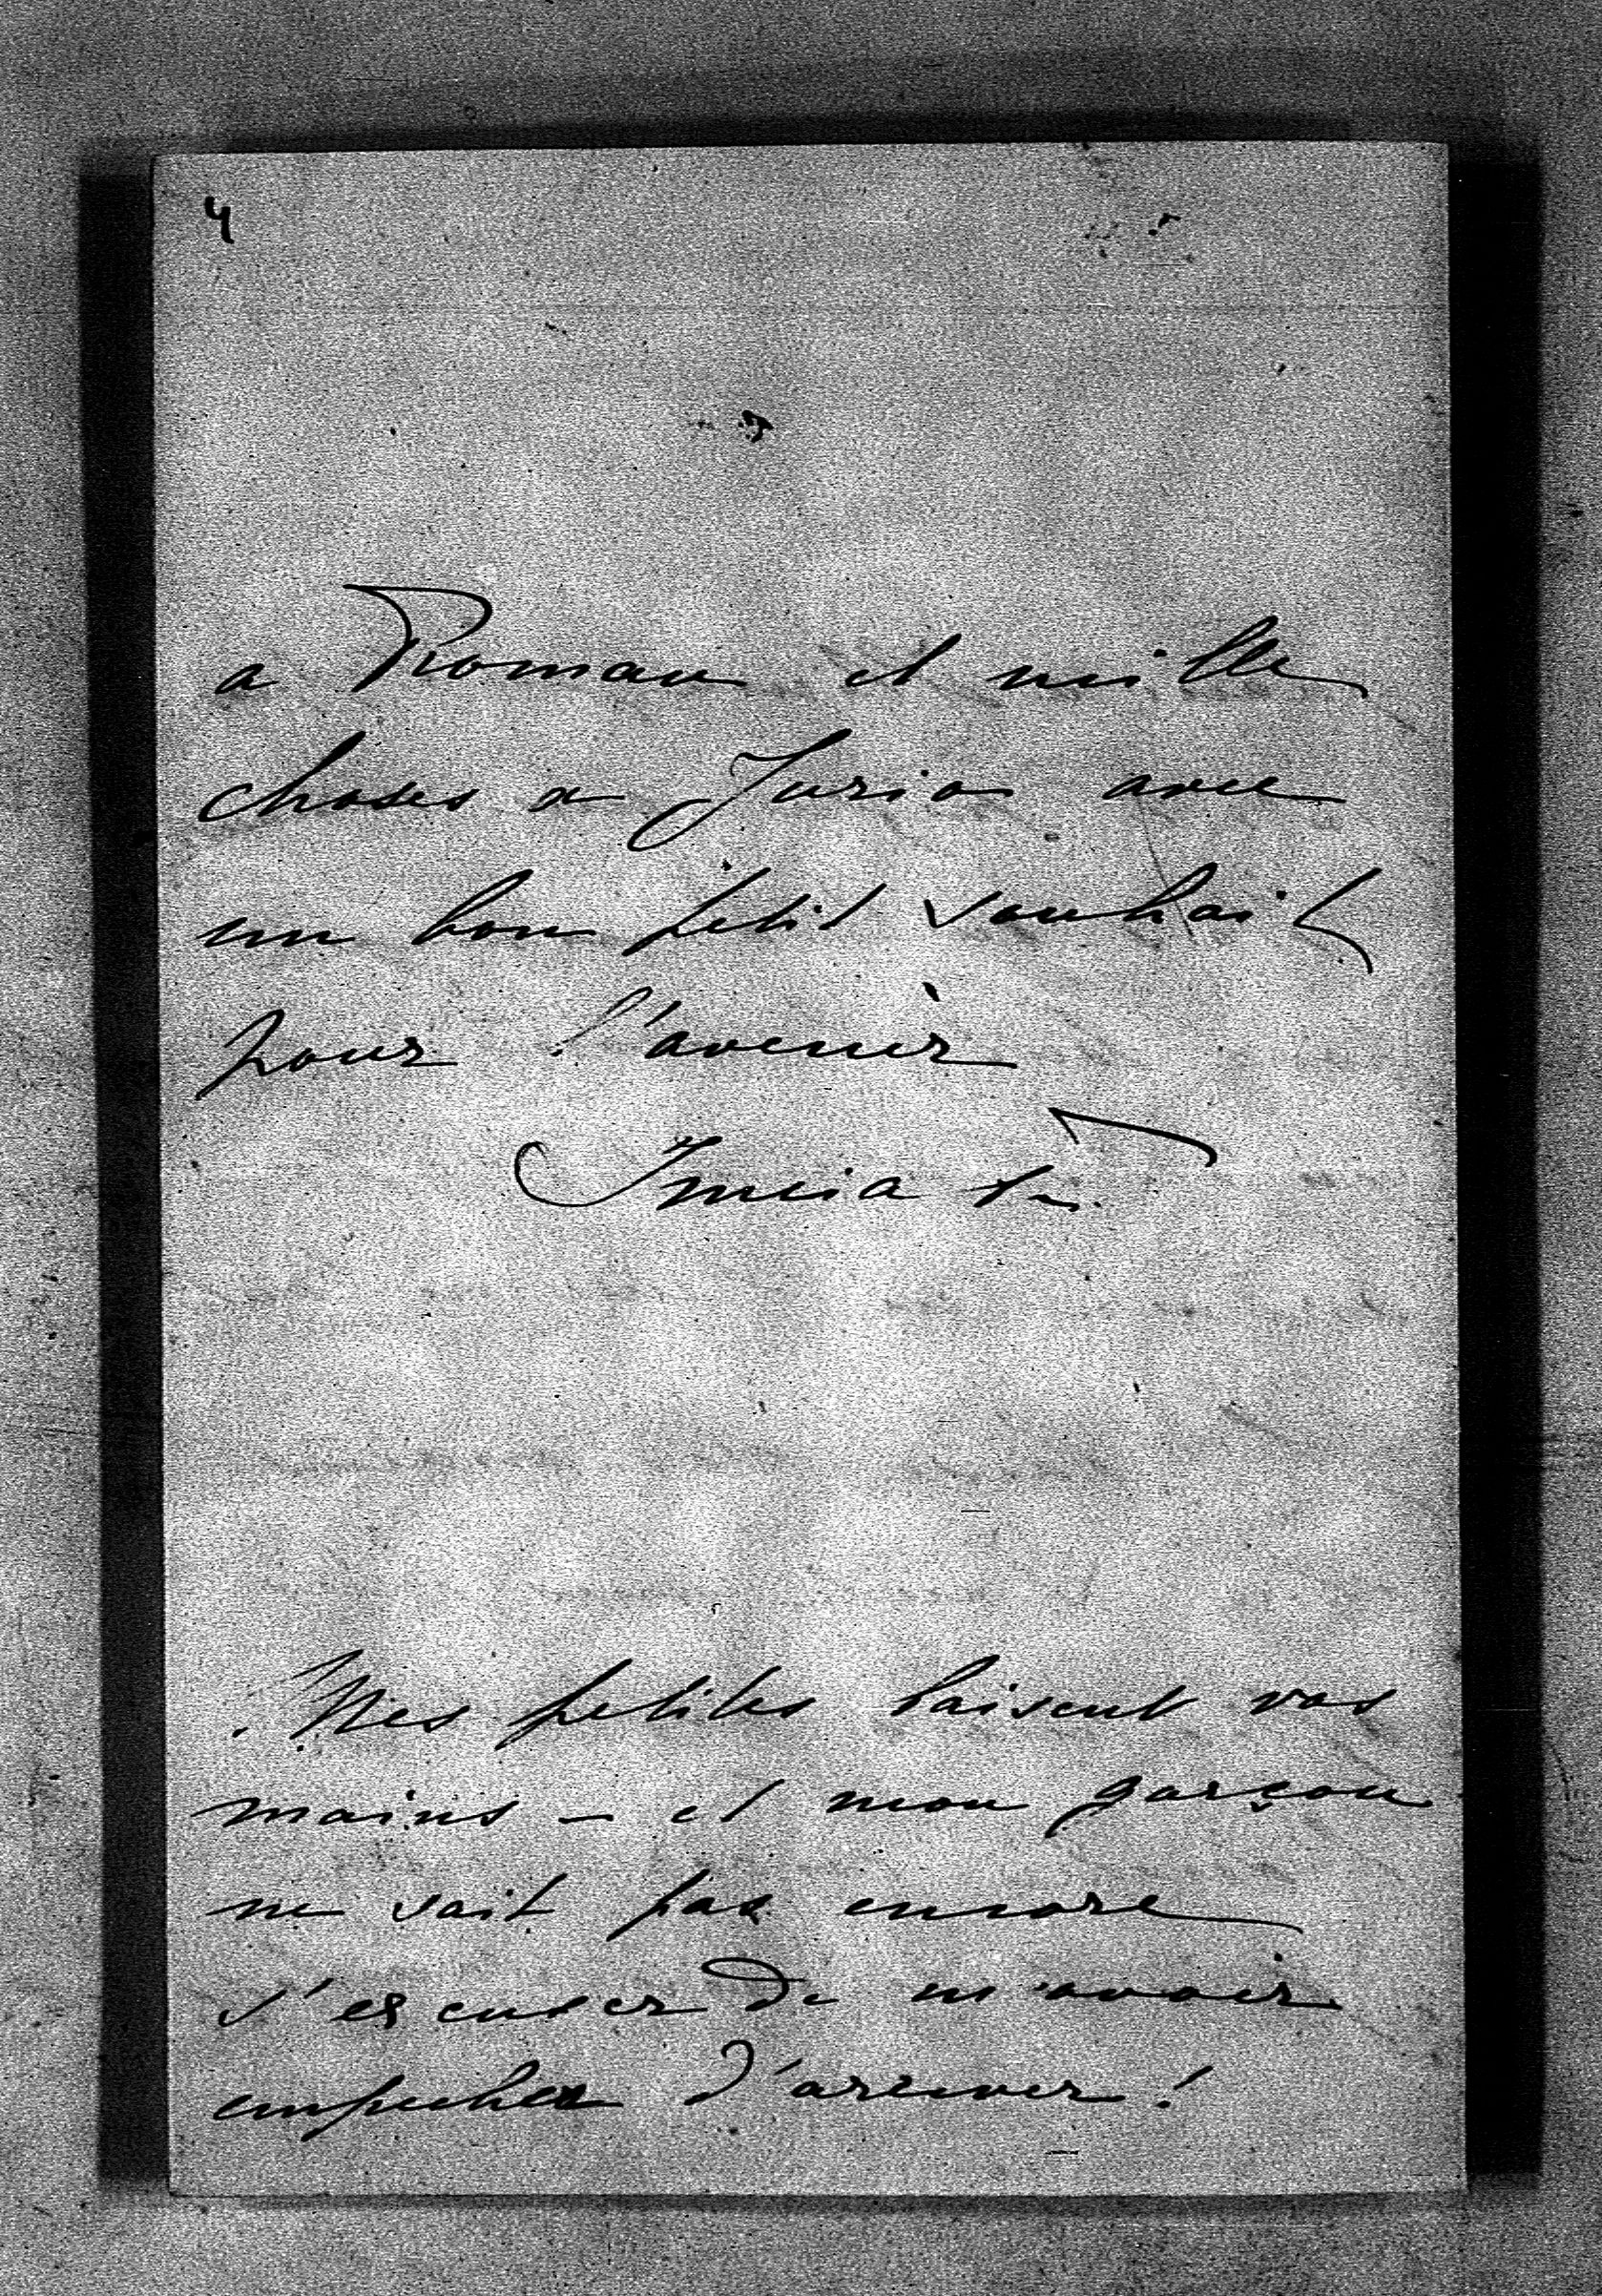 4
a Roman et mille
choses a Juria avec
un bon petit souhait
pour l'avenir
Mes petites baisent vos
mains – et mon garçon
ne sait pas encore
s'excuser de m'avoir
empecher d'arriver !